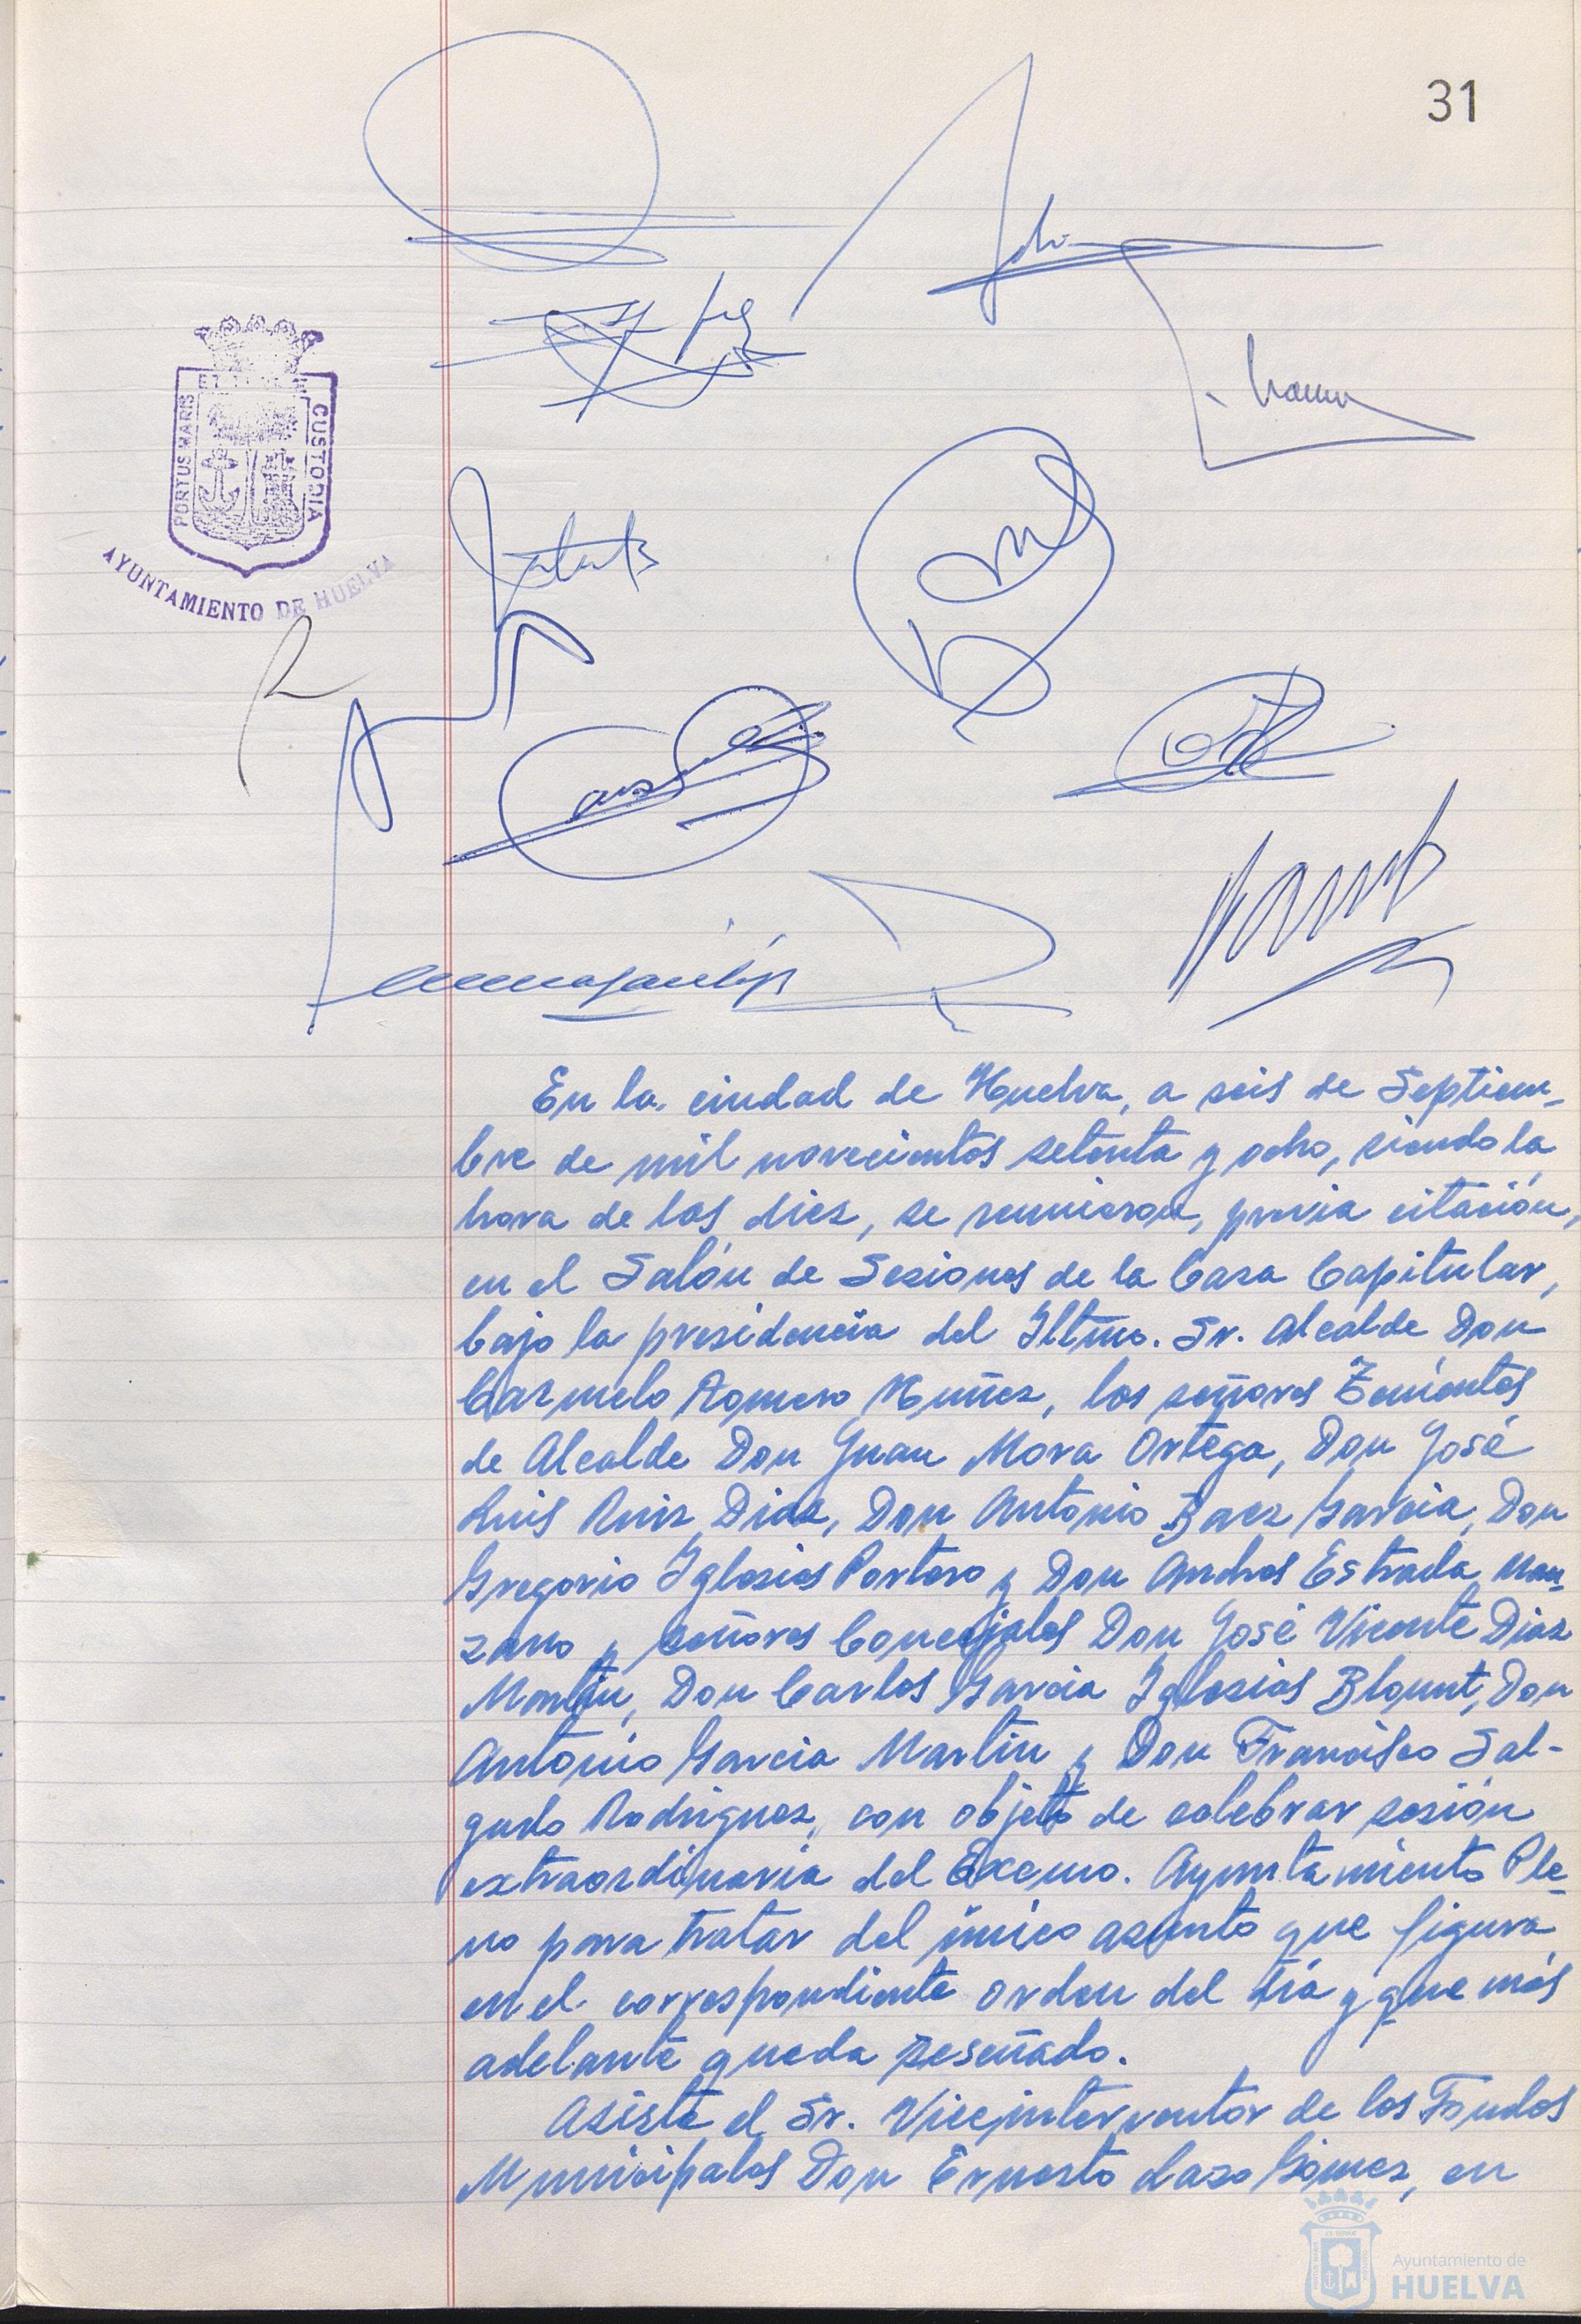 31
ET TERRAE
PORTUS MARIS
CUSTODIA
AYUNTAMIENTO DE HUELVA
En la ciudad de Huelva, a seis de Septiem-
bre de mil novecientos setenta y ocho, siendo la
hora de las diez, se reunieron, previa citación,
en el Salón de Sesiones de la Casa Capitular,
bajo la presidencia del Iltmo. Sr. Alcalde Don
Carmelo Romero Nuñez, los señores Tenientes
de Alcalde Don Juan Mora Ortega, Don José
Luis Ruiz Diaz, Don Antonio Baez Garcia, Don
Gregorio Iglesias Portero y Don Andres Estrada Man-
zano y señores Concejales Don José Vicente Diaz
Martin, Don Carlos Garcia Iglesias Blount, Don
Antonio Garcia Martin y Don Francisco Sal-
gado Rodriguez, con objeto de celebrar sesión
extraordinaria del Excmo. Ayuntamiento Ple-
no para tratar del único asunto que figura
en el correspondiente orden del día y que más
adelante queda reseñado.
Asiste el Sr. Viceinterventor de los Fondos
Municipales Don Ernesto Lazo Gomez, en
Ayuntamiento de
HUELVA